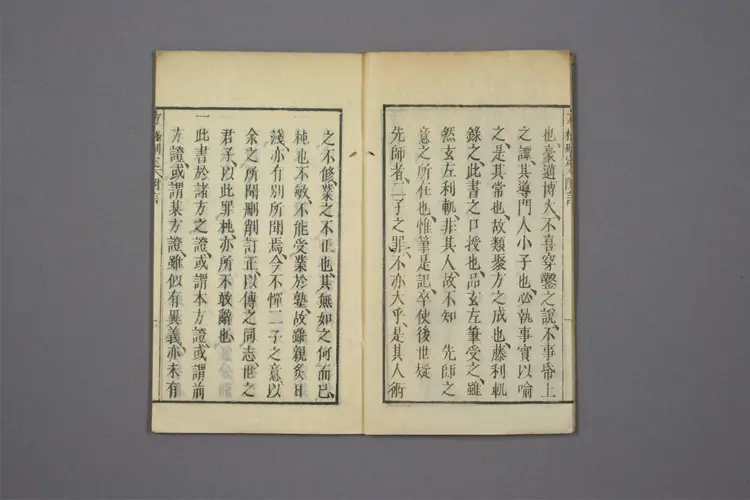 也、豪邁博大、不喜穿鑿之說、不事帋上
之譚、其導門人小子也、必執事實以喻
之、是其常也、故類聚方之成也、藤利軏
錄之、此書之口授也、品玄左筆受之、雖
然玄左利軏、非其人、故不知 先師之
意之所在也、惟筆是記、卒使後世疑
先師者、二子之罪、不亦大乎、是其人術
之不修、業之不正也、其無如之何而已、
杶也不敏、不能受業於塾、故雖親炙日
淺、亦有別所聞焉、今不憚二子之意、以
余之所聞刪削訂正、以傳之同志、世之
君子、以此罪杶、亦所不敢辭也、
一此書於諸方之證、或謂本方證、或謂前
方證、或謂某方證、雖似有異義、亦未有